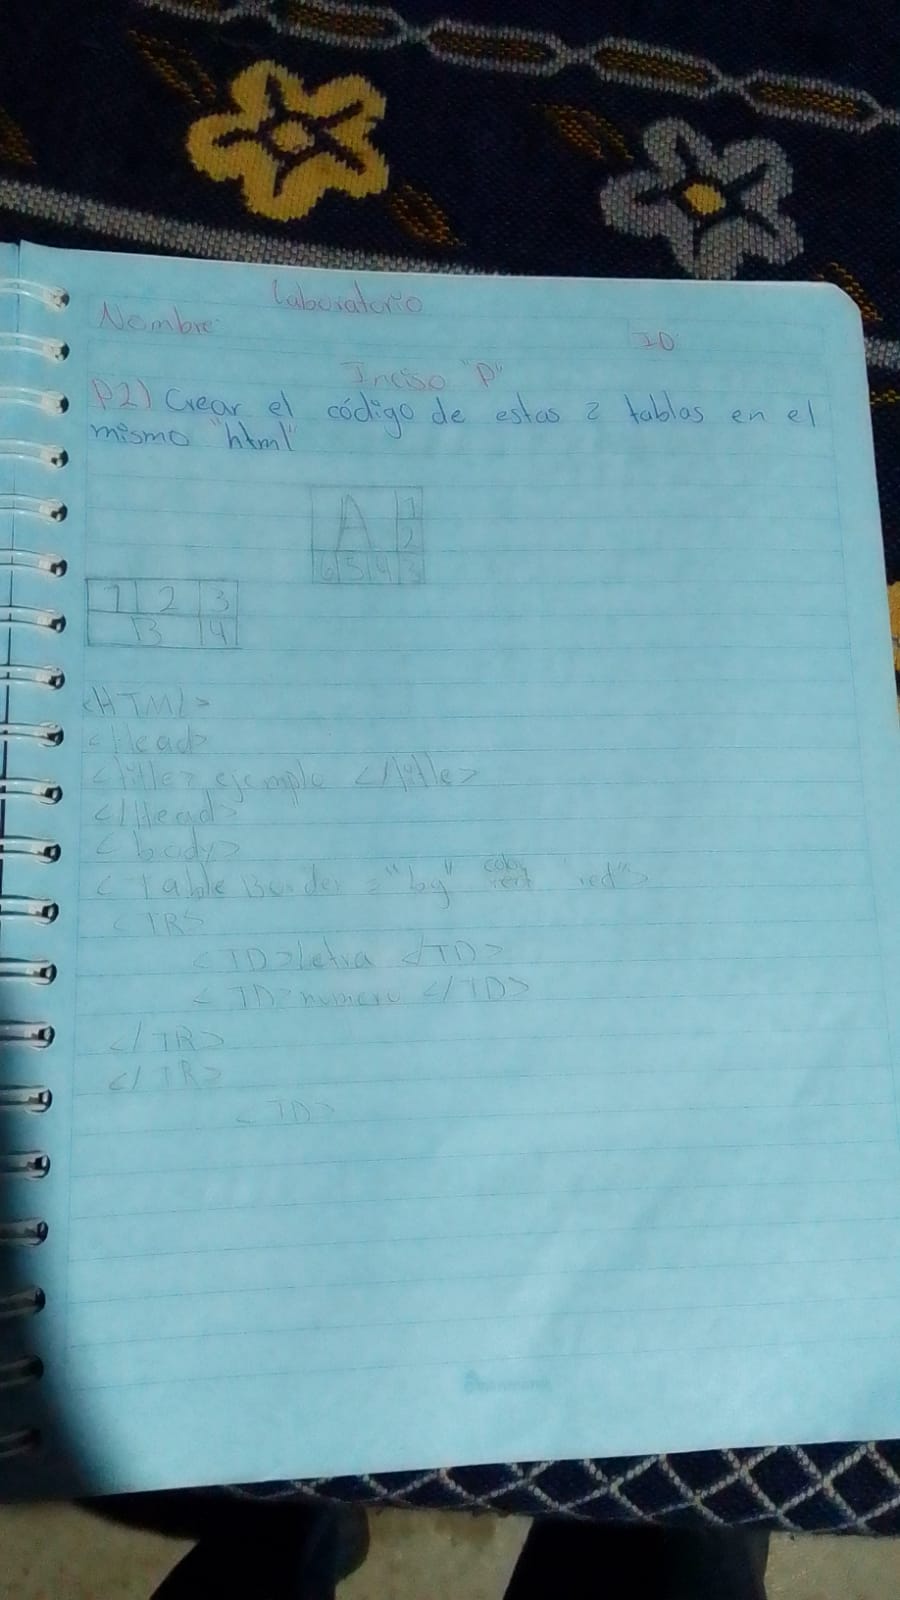 Laboratorio
Nombre: ID:
Inciso "P"
P2) Crear el código de estas 2 tablas en el
mismo "html"
A 1
2
6 5 4 3
1 2 3
B 4
<HTML>
<Head>
<title> ejemplo </title>
</Head>
<body>
<Table Border = "bg" color "red">
<TR>
<TD>letra </TD>
<TD>numero </TD>
</TR>
</TR>
<TD>